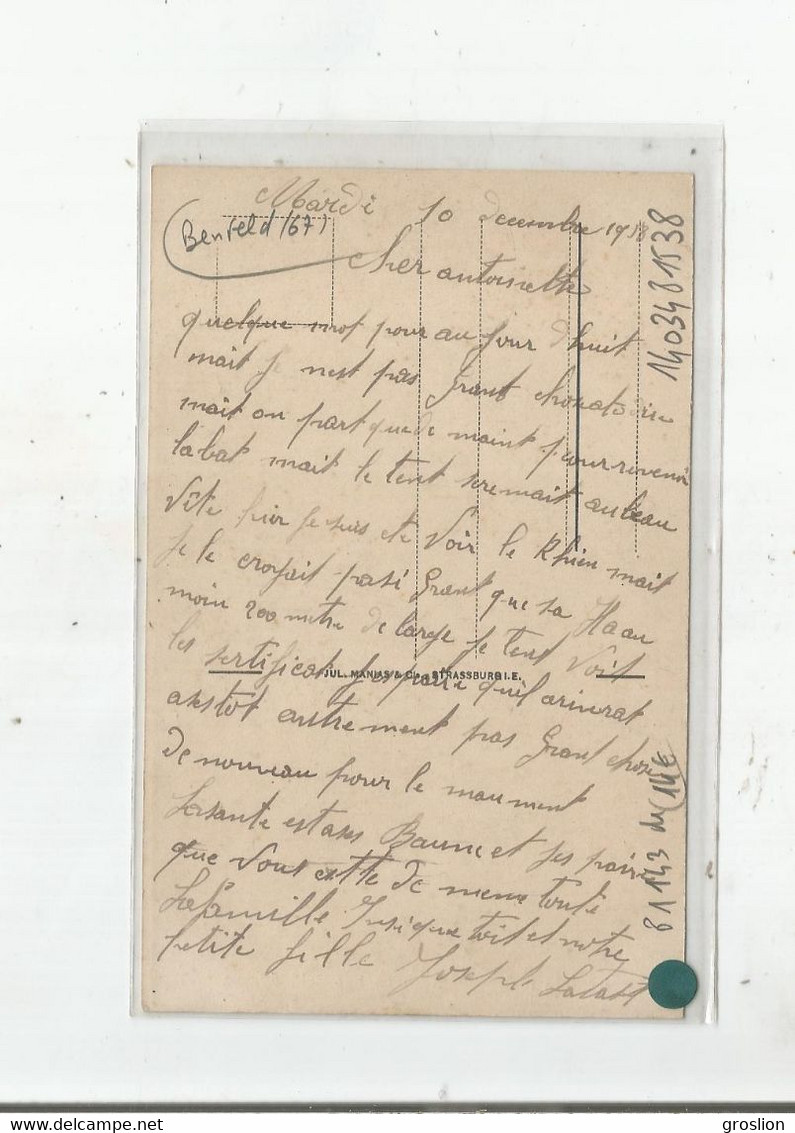 Mardi 10 decembre 1918
(Benfeld (67)
cher antoinette
quelque mot pour au jour d huit
mait je nest pas Grant chose a te dire
mait on part que de maint pour revenir
labat mait le tent seremait au beau
Vite hier je suis ete Voir le Rhien mait
je le croyait pasi Grant que sa Il a au
moin 200 metre de large je tent Voit
les sertificat jes paire quil ariverat
asstôt autrement pas Grant chose
de nouveau pour le maument
La sante est ases Baune et jes paire
que Vous ette de meme toute
La famille Jusi que toit et notre
petite fille Joseph
JUL. MANIAS & Cie, STRASSBURG I.E.
1403481538
81143 du (14€
groslion